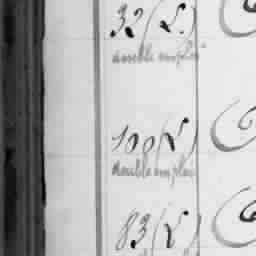 32 (L.)
double emploi
100 (L)
double emploi
83 (L)